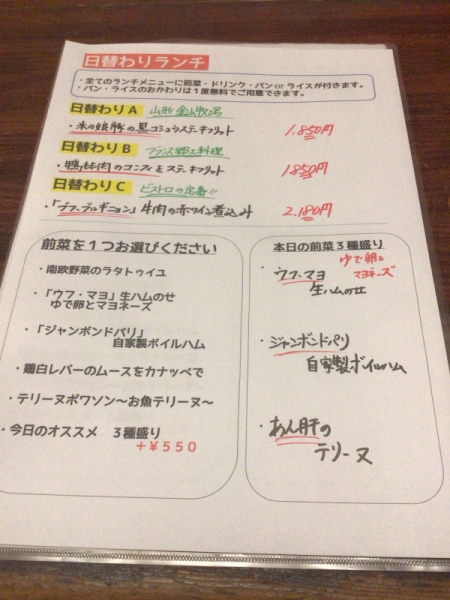 日替わりランチ
・全てのランチメニューに前菜・ドリンク・パンorライスが付きます。
・パン・ライスのおかわりは1度無料でご用意できます。
日替わりA 山形 金山牧場
・米の娘豚の黒コショウステキフリット 1.850円
日替わりB フランス郷土料理
・鴨もも肉のコンフィ&ステキフリット 1850円
日替わりC ビストロの定番!!
・「ブフ・ブルギニョン」牛肉の赤ワイン煮込み 2.180円
前菜を1つお選びください
・南欧野菜のラタトゥイユ
・「ウフ・マヨ」生ハムのせ
ゆで卵とマヨネーズ
・「ジャンボンドパリ」
自家製ボイルハム
・鶏白レバーのムースをカナッペで
・テリーヌポワソン〜お魚テリーヌ〜
・今日のオススメ 3種盛り
+¥550
本日の前菜3種盛り
・ウフ・マヨ ゆで卵と
マヨネーズ
生ハムのせ
・ジャンボンドパリ
自家製ボイルハム
・あん肝の
テリーヌ